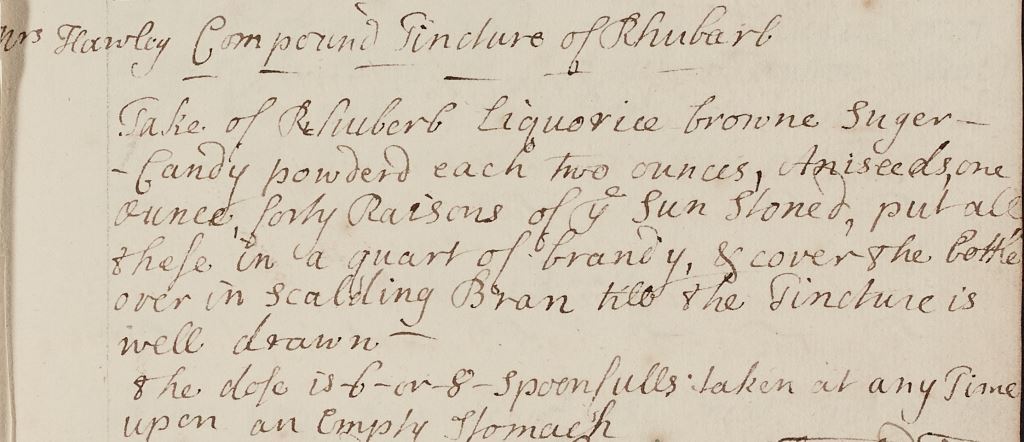 Mrs Hawley Compound Tincture of Rhubarb
Take of Rhuberb Liquorice browne Suger-
-Candy powderd each two ounces, Aniseeds, one
ounce, forty Raisons of yͤ Sun Stoned, put all
these in a quart of brandy, & cover the bottle
over in Scalding Bran till the Tincture is
well drawn—
the dose is-6-or-8-Spoonfulls taken at any Time
upon an Empty Stomach